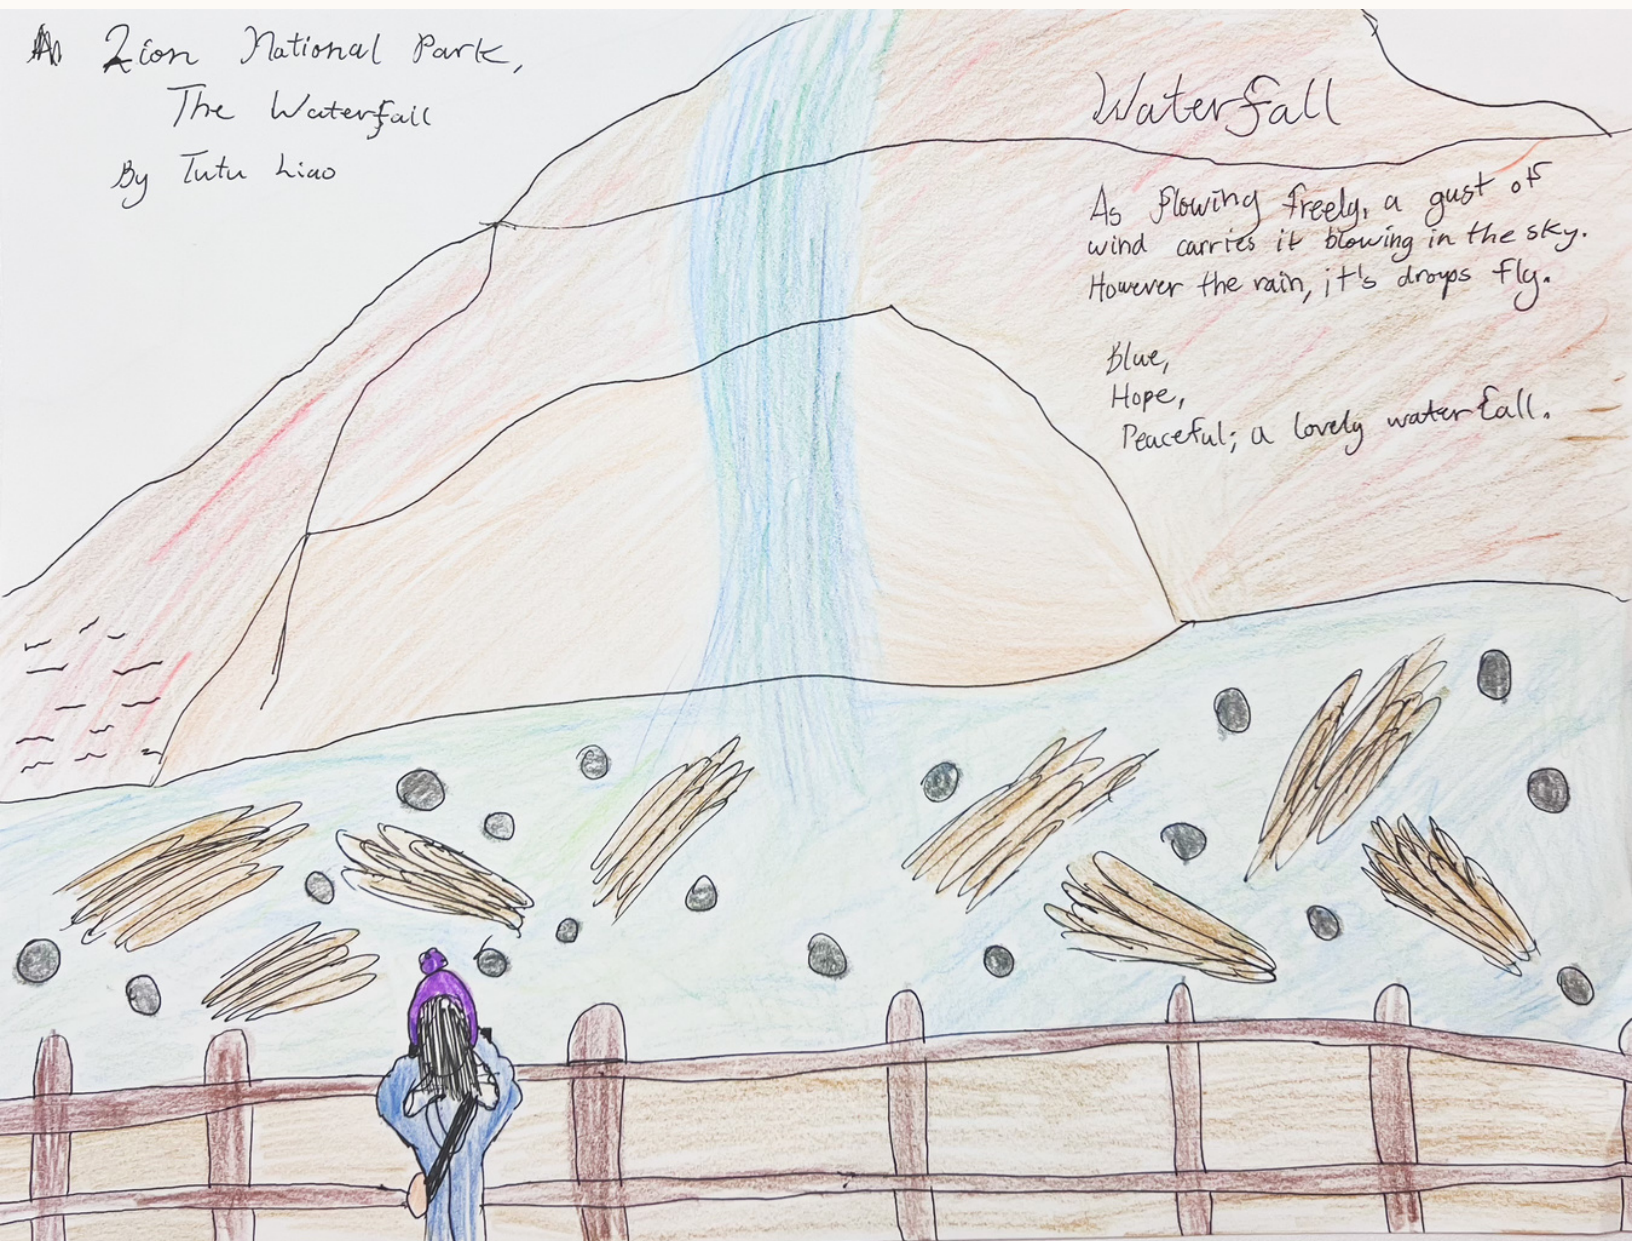 Zion National Park,
The Waterfall
By Tutu Liao
Waterfall
As flowing freely, a gust of
wind carries it blowing in the sky.
However the rain, it's drops fly.
Blue,
Hope,
Peaceful; a lovely waterfall.